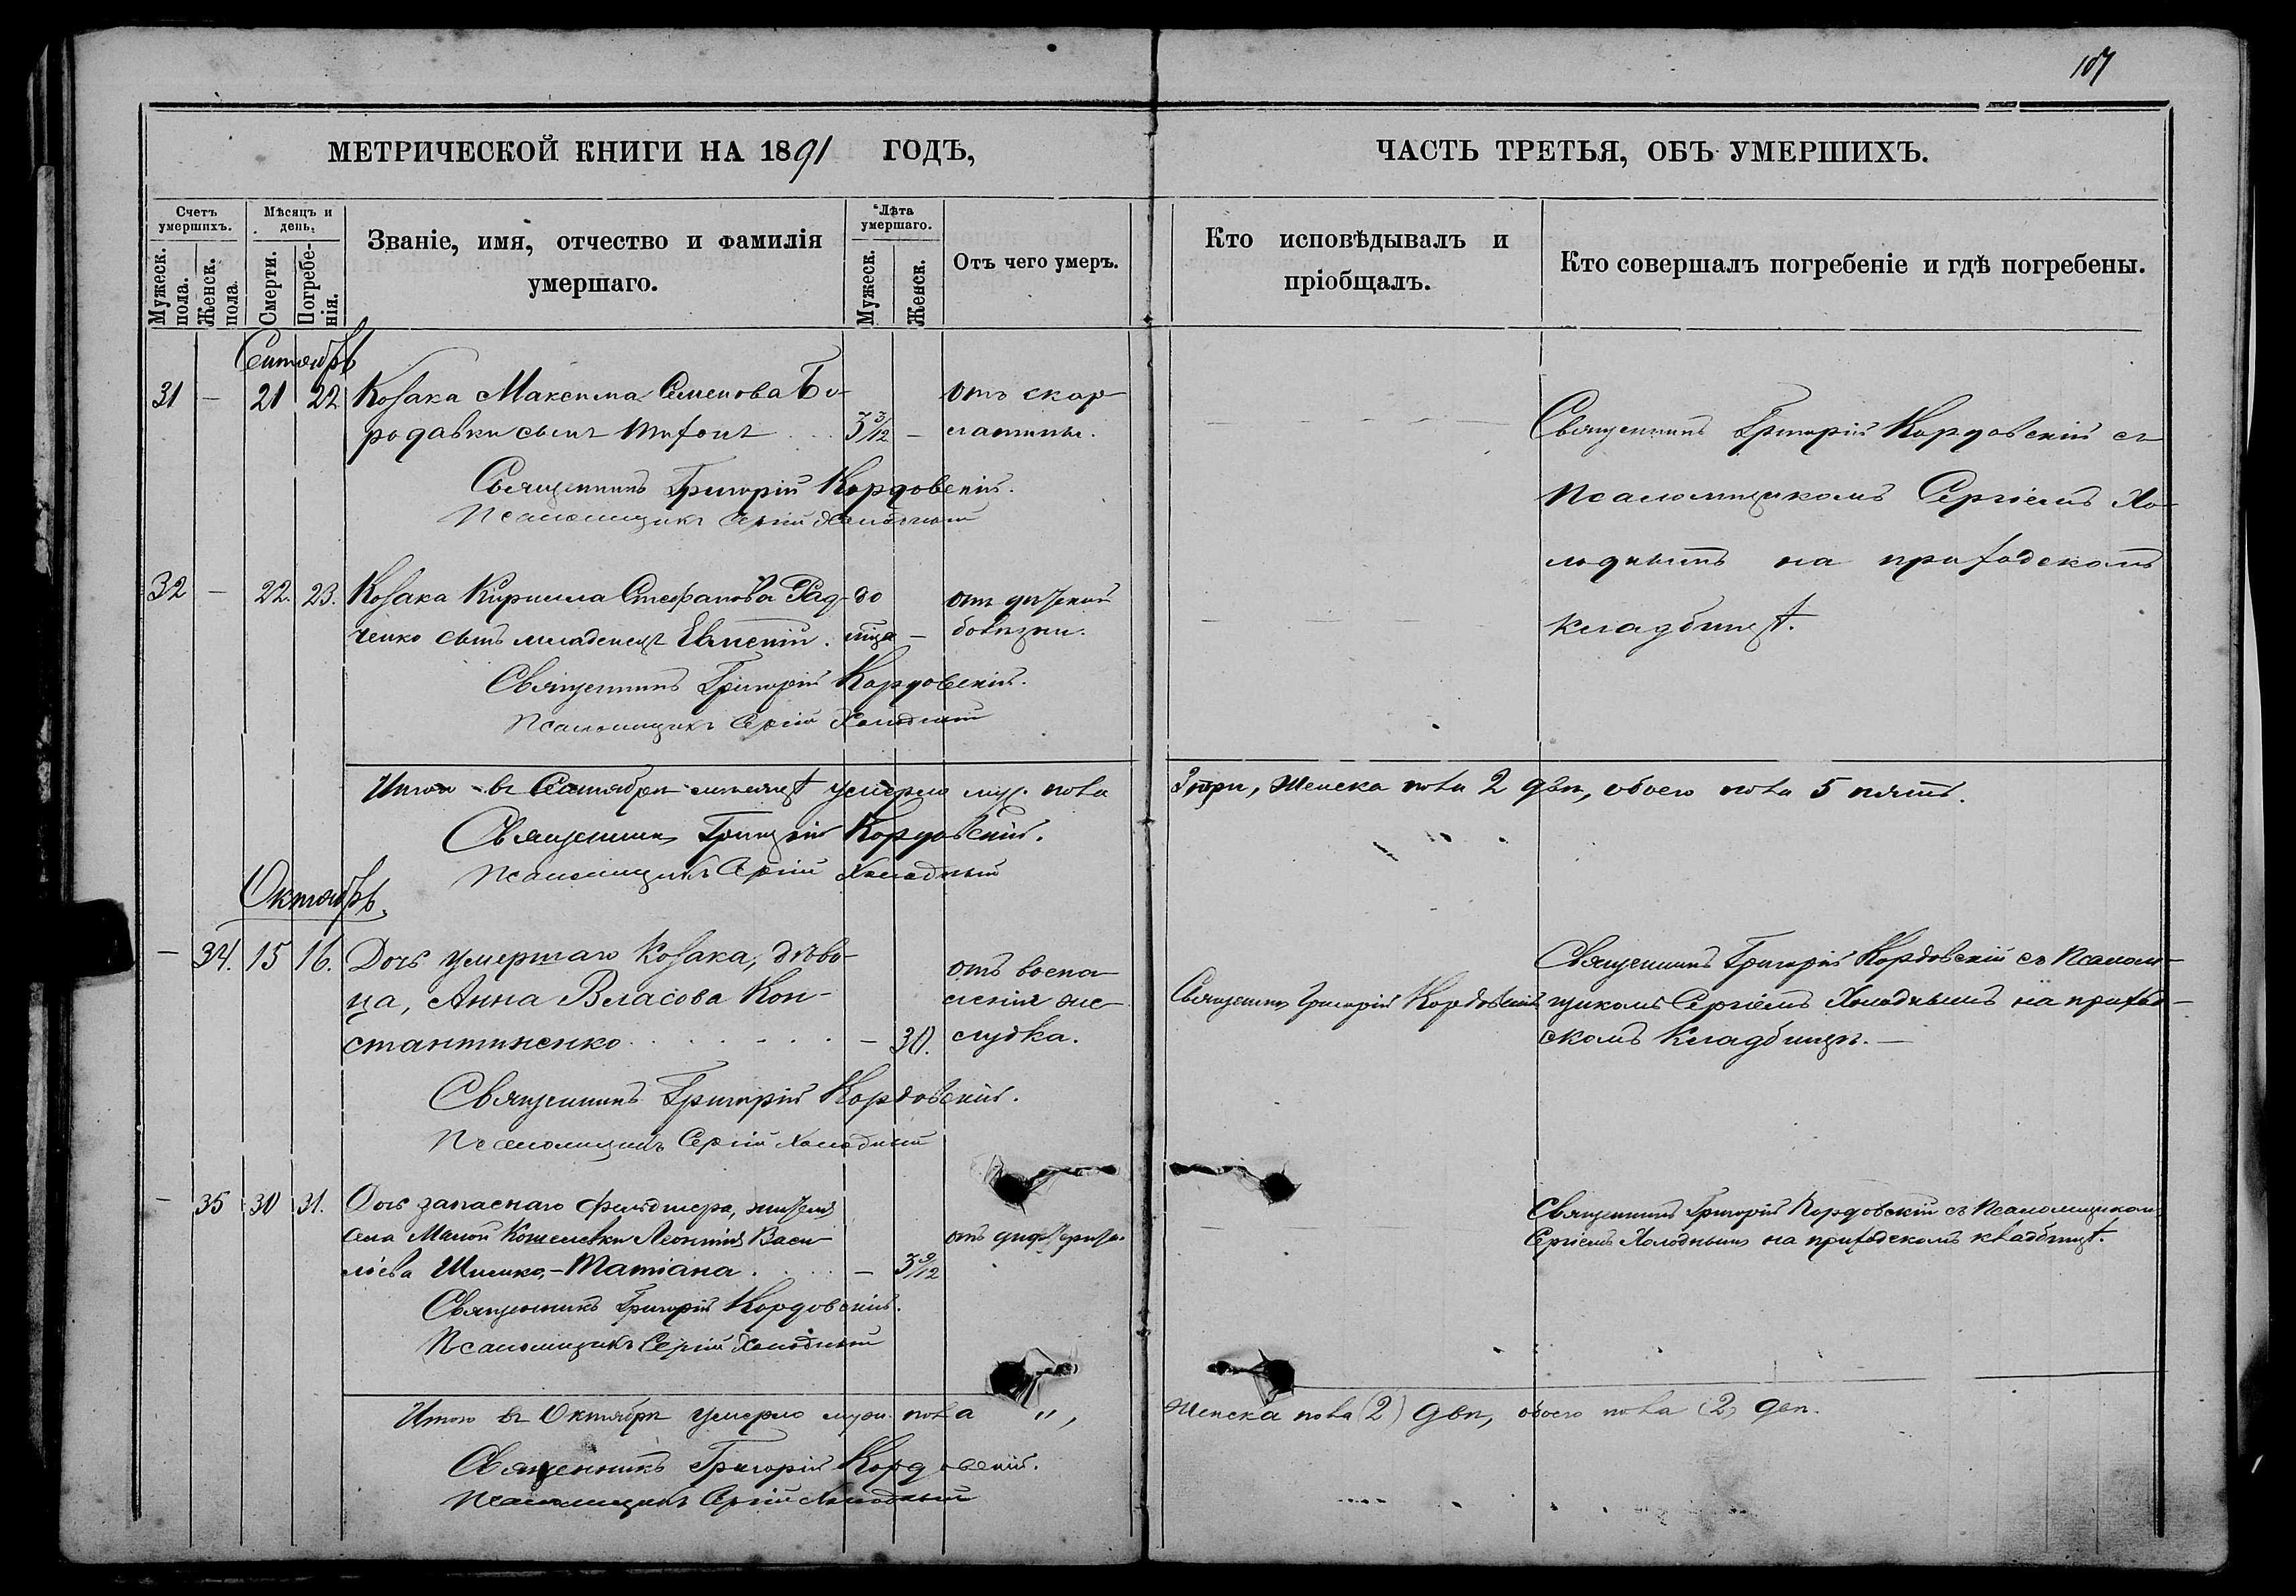 107
МЕТРИЧЕСКОЙ КНИГИ НА 1891 ГОДЪ,
ЧАСТЬ ТРЕТЬЯ, ОБЪ УМЕРШИХЪ.
Счетъ умершихъ.
Мужеск. пола.
Женск. пола.
Мѣсяцъ и день.
Смерти.
Погребенія.
Званіе, имя, отчество и фамилія
умершаго.
Лѣта умершаго.
Мужеск.
Женск.
Отъ чего умеръ.
Кто исповѣдывалъ и
пріобщалъ.
Кто совершалъ погребеніе и гдѣ погребены.
Сентябрь
31 — 21 22 Козака Максима Семенова Бо- отъ скар-
родавки сынъ Тихонъ 3 3/12 — латины.
Священникъ Григорій Кордовскій.
Псаломщикъ Сергій Холодный
Священникъ Григорій Кордовскій съ
Псаломщикомъ Сергіемъ Хо-
лоднымъ на приходскомъ
кладбищѣ.
32 — 22. 23. Козака Кирилла Стефанова Рад- до отъ дѣтской
ченко сынъ младенецъ Евгеній. — болѣзни.
Священникъ Григорій Кордовскій.
Псаломщикъ Сергій Холодный
Итого въ Сентябрѣ мѣсяцѣ умерло муж. пола 3 три, Женска пола 2 двѣ, обоего пола 5 пять.
Священникъ Григорій Кордовскій.
Псаломщикъ Сергій Холодный
Октябрь.
— 34. 15 16. Дочь умершаго Козака, дѣви-
ца, Анна Власова Кон-
стантиненко — 30.
отъ воспа-
ленія же-
лудка.
Священникъ Григорій Кордовскій
Священникъ Григорій Кордовскій съ Псалом-
щикомъ Сергіемъ Холоднымъ на приход-
скомъ кладбищѣ. —
Священникъ Григорій Кордовскій.
Псаломщикъ Сергій Холодный
— 35 30 31. Дочь запаснаго фельдшера, жителя
села Малой Кошелевки Леонтія Васи-
льева Шишко, — Татіана — 3 9/12
отъ дифтерита.
Священникъ Григорій Кордовскій съ Псаломщикомъ
Сергіемъ Холоднымъ на приходскомъ кладбищѣ.
Священникъ Григорій Кордовскій.
Псаломщикъ Сергій Холодный
Итого въ Октябрѣ умерло муж. пола „, Женска пола (2) двѣ, обоего пола (2) двѣ.
Священникъ Григорій Кордовскій.
Псаломщикъ Сергій Холодный